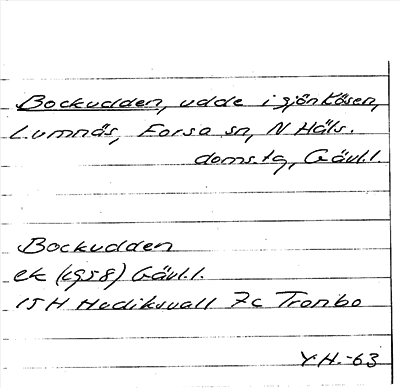 Bockudden, udde i sjön Kösen,
Lumnäs, Forsa sn, N Häls.
domstg, Gävl.l.
Bockudden
ek (1958) Gävl.l.
15H Hudiksvall 7c Trombo
Y.H.-63